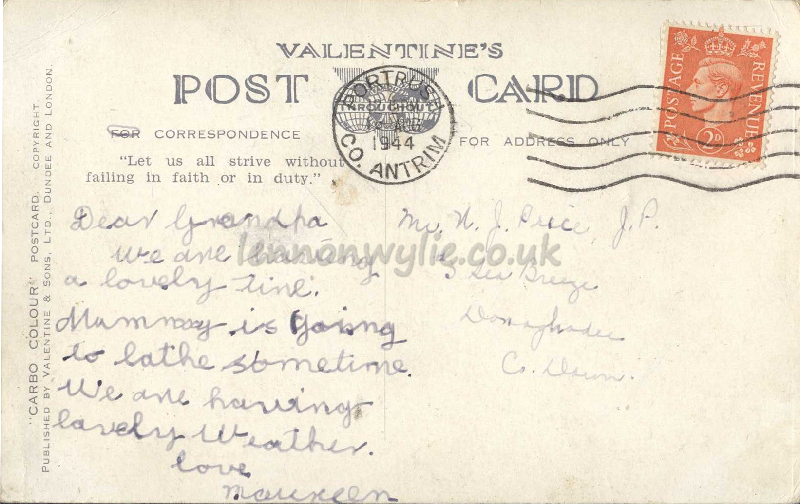 VALENTINE'S
POST CARD
FOR CORRESPONDENCE
FOR ADDRESS ONLY
"Let us all strive without
failing in faith or in duty."
PORTRUSH
1944
CO. ANTRIM
POSTAGE
REVENUE
2D
Dear Grandpa
We are having
a lovely time.
Mummy is going
to bathe sometime.
We are having
lovely Weather.
love
Maureen
Mr. J. Price, J.P.
Sea Breeze
Donaghadee
Co. Down.
lennonwylie.co.uk
"CARBO COLOUR" POSTCARD. COPYRIGHT
PUBLISHED BY VALENTINE & SONS, LTD., DUNDEE AND LONDON.